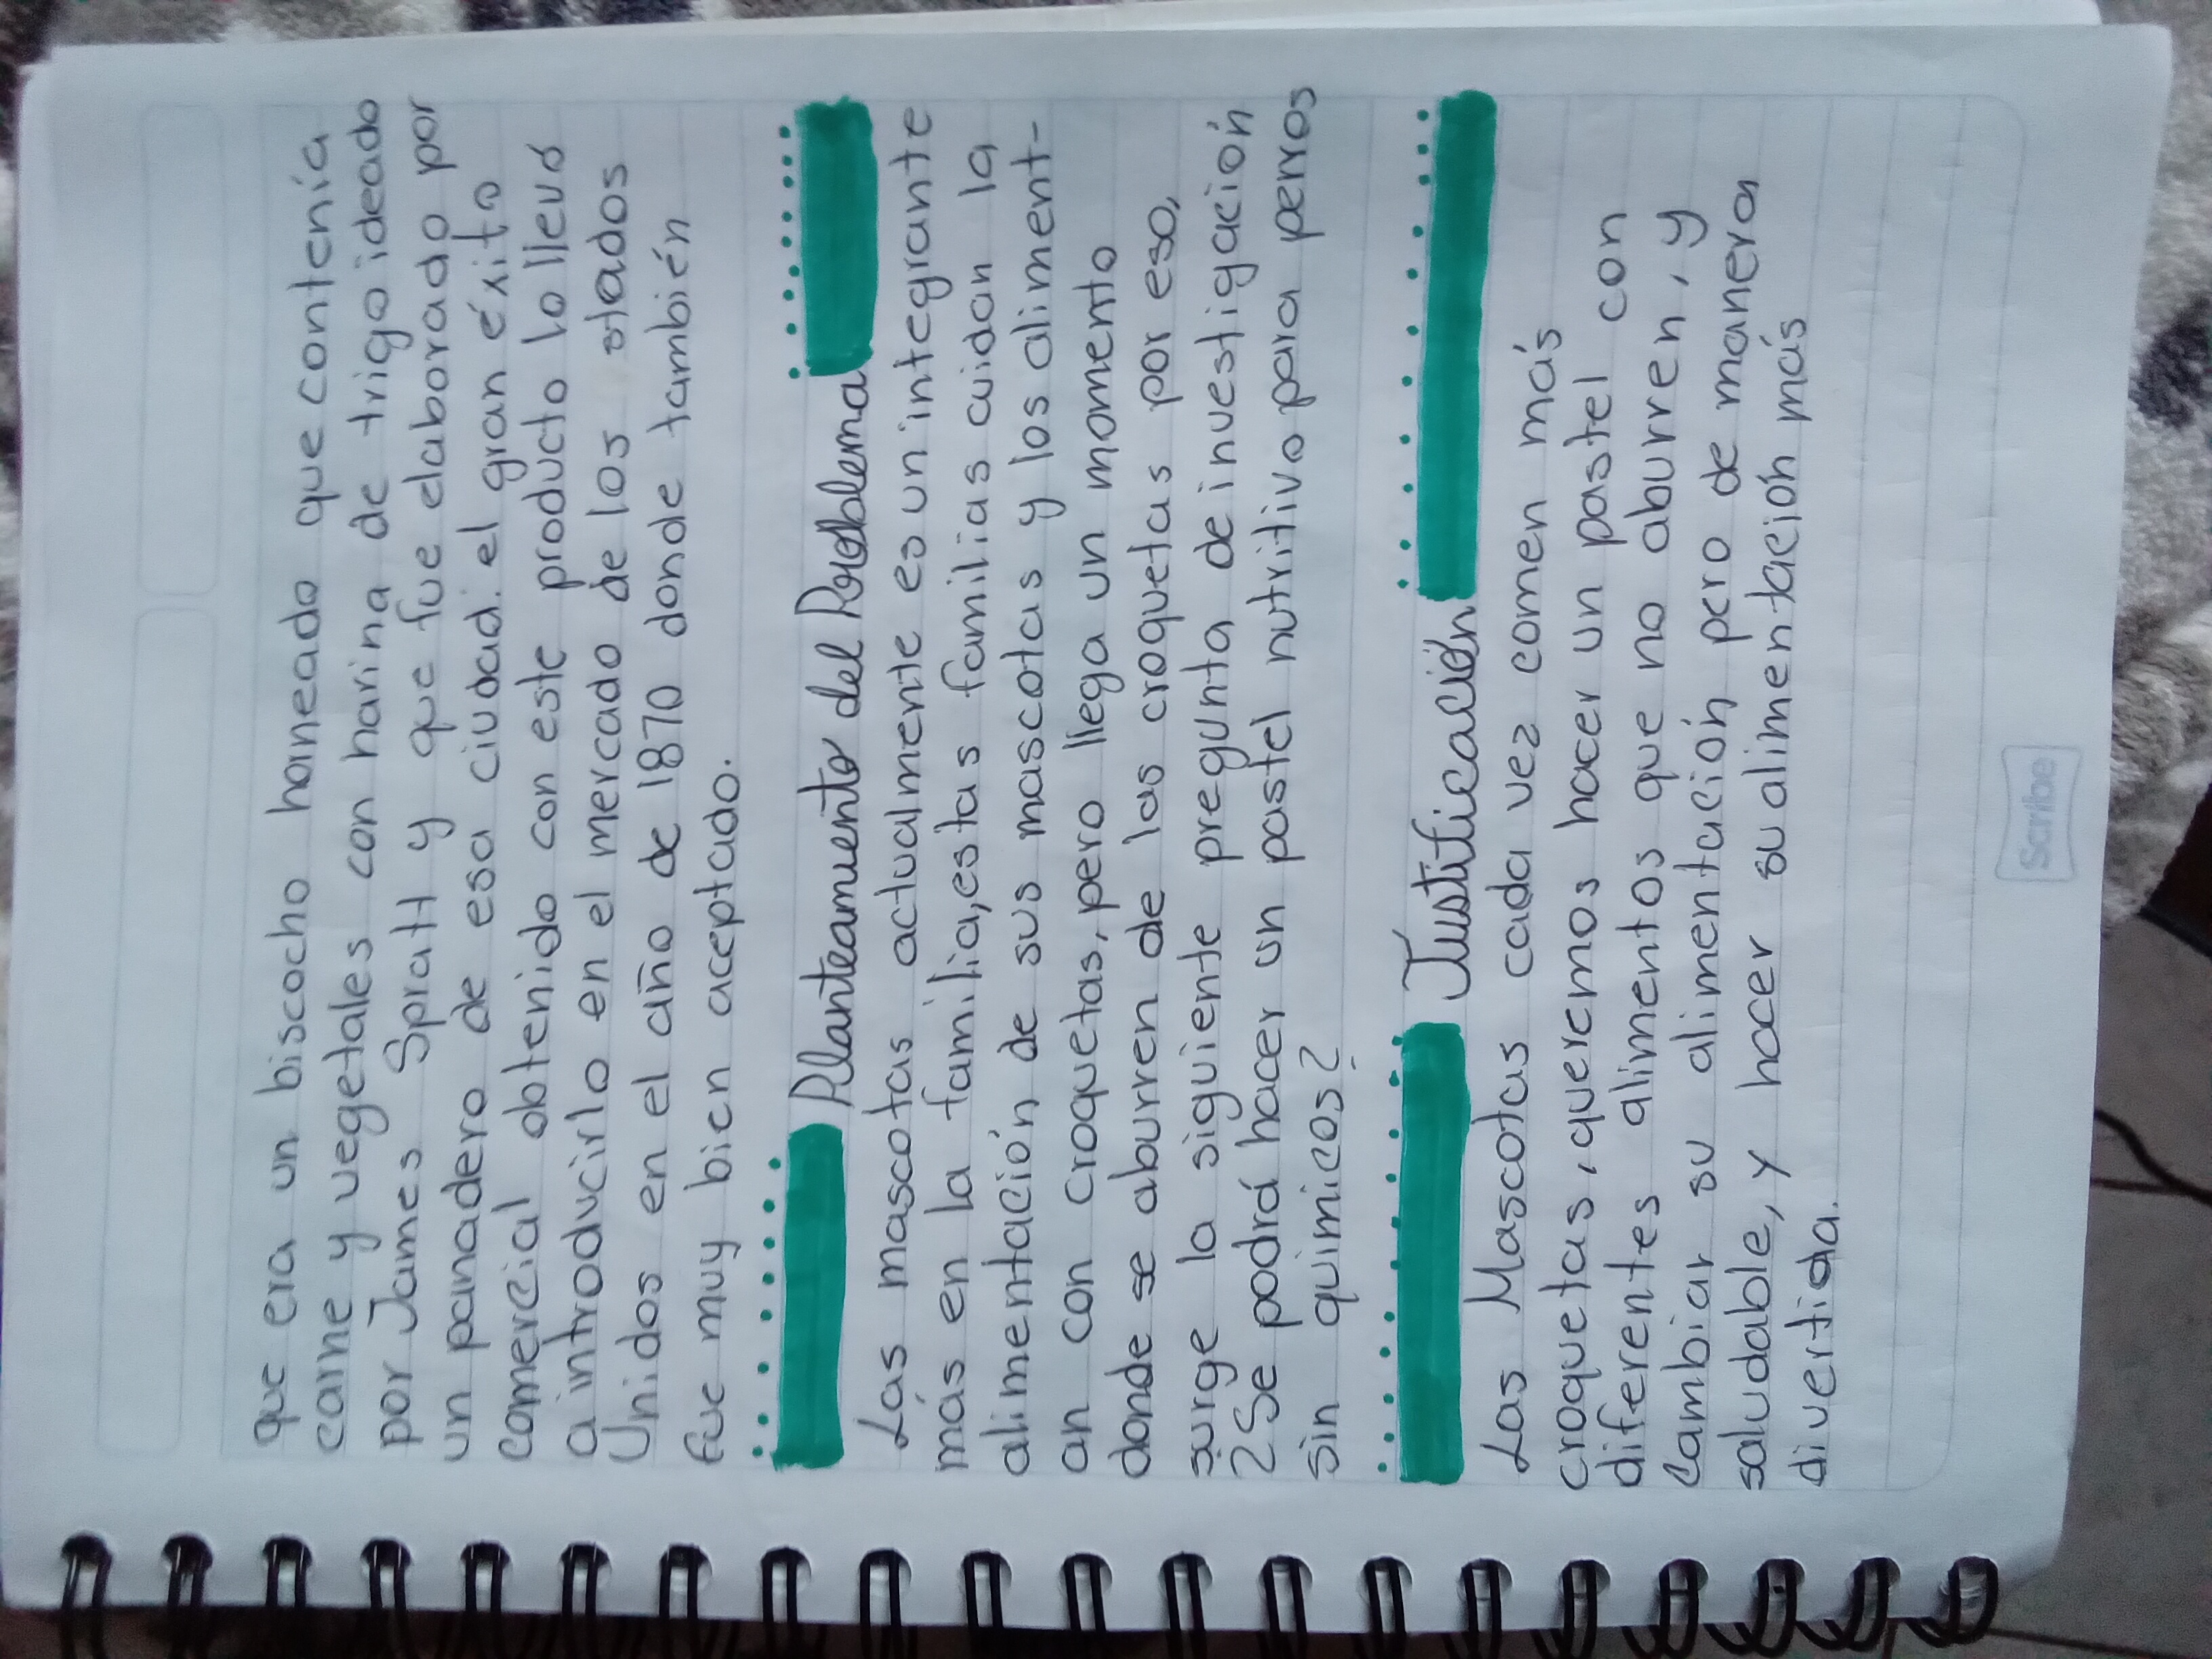 que era un biscocho horneado que contenía
carne y vegetales con harina de trigo ideado
por James Spratt y que fue elaborado por
un panadero de esa ciudad. el gran éxito
comercial obtenido con este producto lo llevó
a introducirlo en el mercado de los stados
Unidos en el año de 1870 donde también
fue muy bien aceptado.
Planteamiento del Problema
Las mascotas actualmente es un integrante
más en la familia, estas familias cuidan la
alimentación de sus mascotas y los aliment-
an con croquetas, pero llega un momento
donde se aburren de las croquetas por eso,
surge la siguiente pregunta de investigación
¿Se podrá hacer un pastel nutritivo para perros
sin quimicos?
Justificación
Las Mascotas cada vez comen más
croquetas, queremos hacer un pastel con
diferentes alimentos que no aburren, y
Cambiar su alimentación pero de manera
saludable, y hacer su alimentación más
divertida.
Scribe